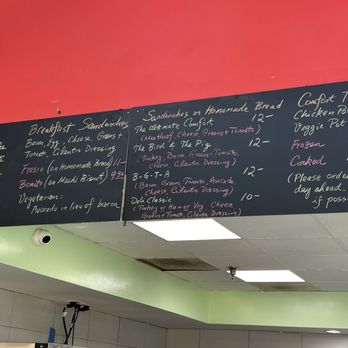 Breakfast Sandwiches
Bacon, Egg, Cheese, Greens +
Tomato, Cilantro Dressing
Fresco (on Homemade Bread) 11-
Bonito (on Mochi Biscuit) 9.50
Vegetarian:
Avocado in lieu of bacon
Sandwiches on Homemade Bread
The Ultimate Comfort 12-
(Meatloaf, Cheese, Greens + Tomato)
The Bird & The Pig 12-
(Turkey, Bacon, Greens, Tomato,
Cheese, Cilantro Dressing)
B-G-T-A 12-
(Bacon, Greens, Tomato, Avocado,
Cheese, Cilantro Dressing)
Deli Classic 10-
(Turkey or Ham or Veg, Cheese,
Greens + Tomato, Cilantro Dressing)
Comfort
Chicken Po
Veggie Pot
Frozen
Cooked
(Please order
day ahead.
if poss